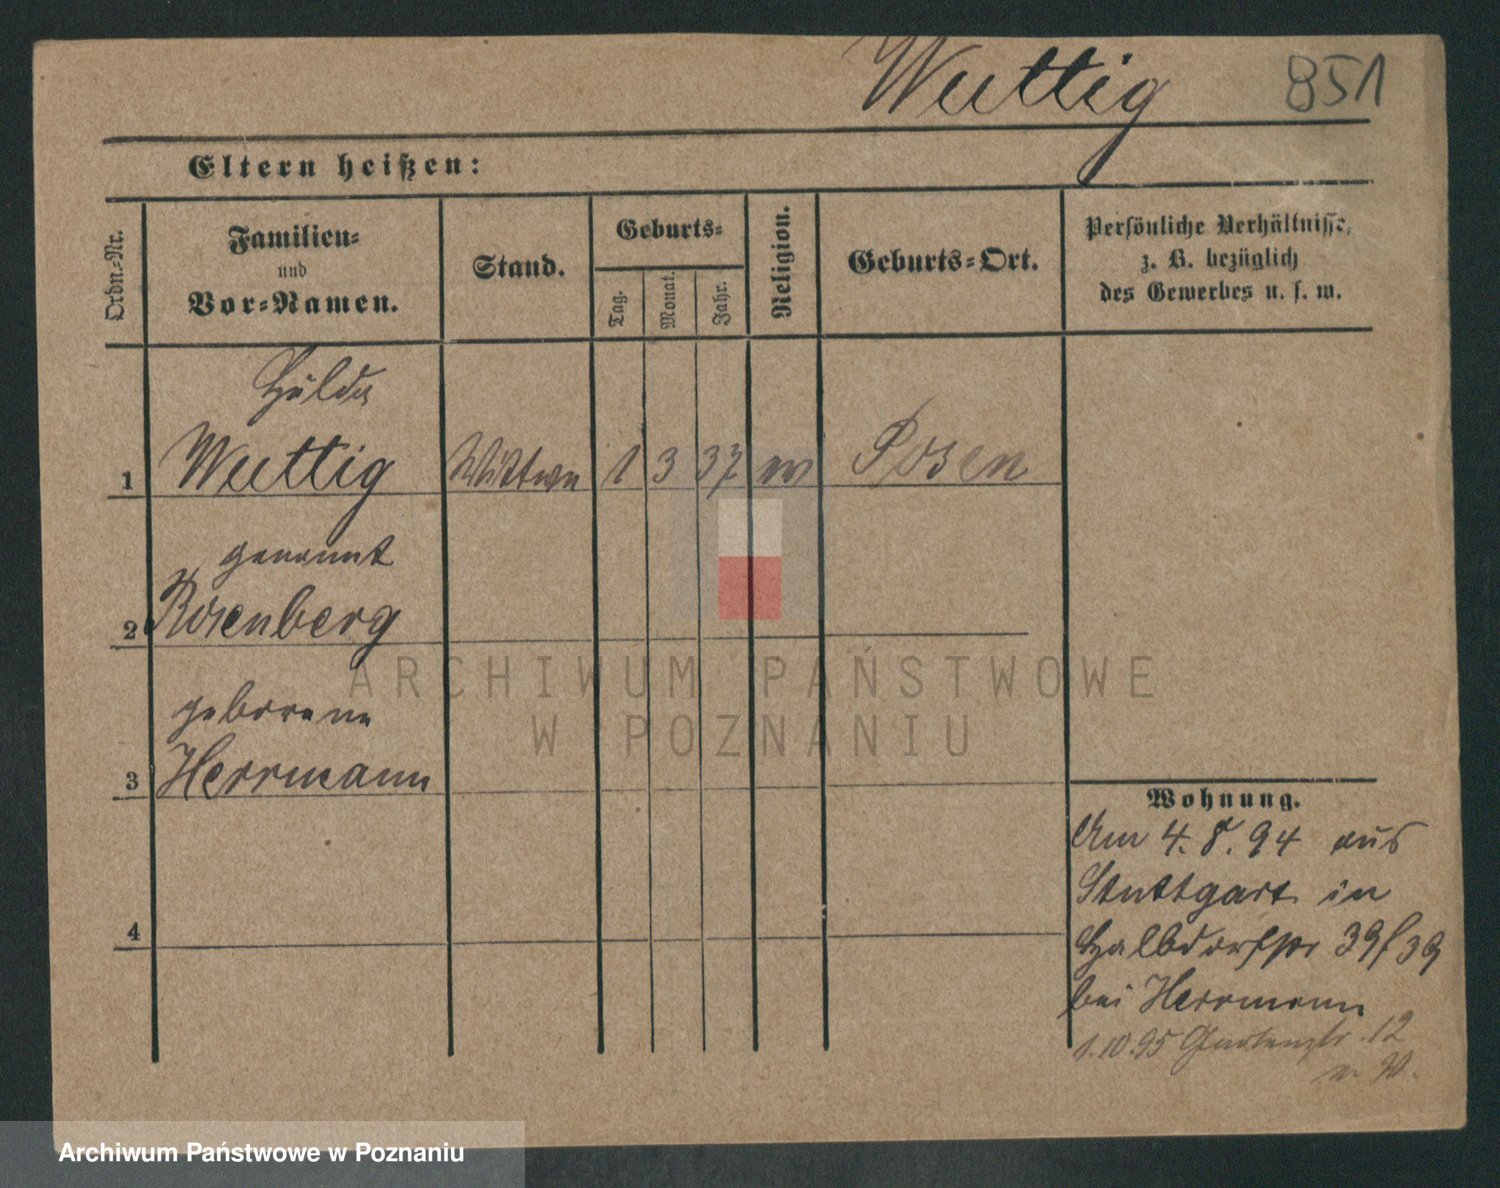 Wuttig 851
Eltern heißen:
Ordn.-Nr.
Familien-
und
Vor-Namen.
Stand.
Geburts-
Tag.
Monat.
Jahr.
Religion.
Geburts-Ort.
Persönliche Verhältnisse,
z. B. bezüglich
des Gewerbes u. s. w.
Hulda
1 Wuttig Wittwe 1 3 37 Posen
genannt
2 Rosenberg
geborene
3 Herrmann
4
Wohnung.
Am 4. 8. 94 aus
Stuttgart in
Halbdorfstr 39/39
bei Herrmann
1.10.95 Gartenstr. 12
ARCHIWUM PAŃSTWOWE
W POZNANIU
Archiwum Państwowe w Poznaniu